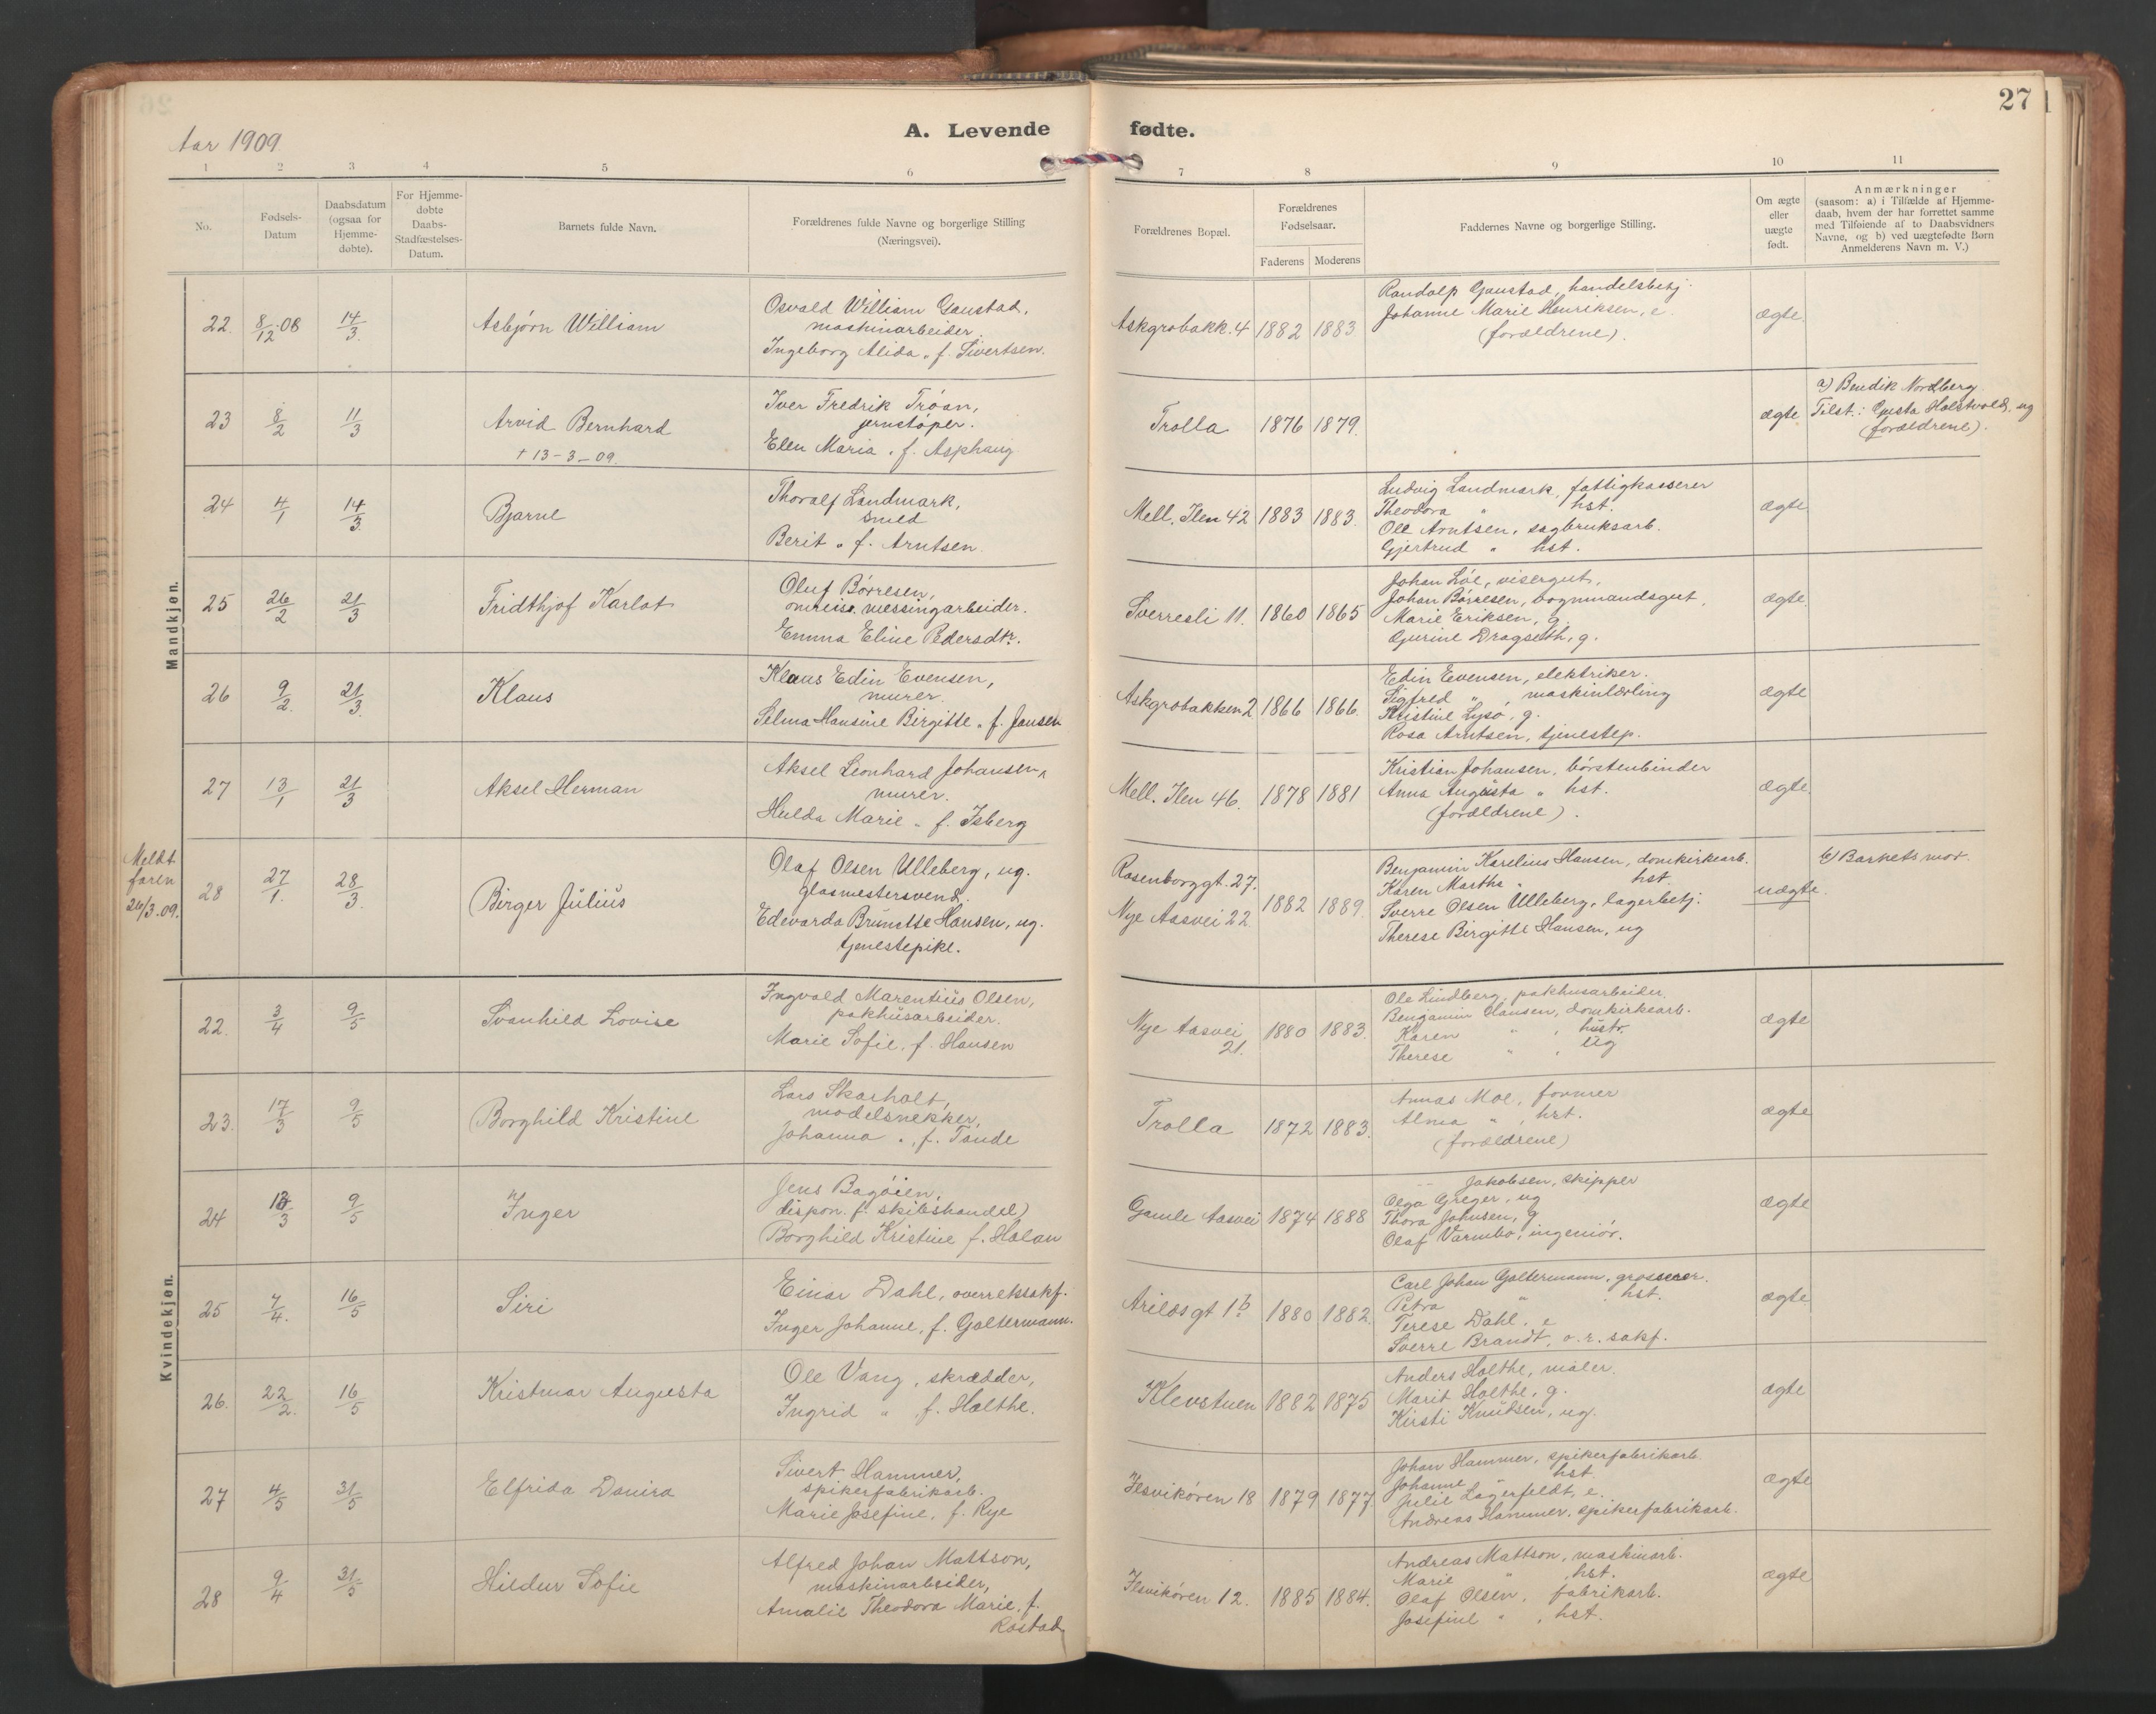 27
Aar 1909
A. Levende fødte.
1 2 3 4 5 6 7 8 9 10 11
No.
Fødsels-Datum
Daabsdatum (ogsaa for Hjemme-døbte).
For Hjemme-døbte Daabs-Stadfæstelses-Datum.
Barnets fulde Navn.
Forældrenes fulde Navne og borgerlige Stilling (Næringsvei).
Forældrenes Bopæl.
Forældrenes Fødselsaar.
Faderens Moderens
Faddernes Navne og borgerlige Stilling.
Om ægte eller uægte født.
Anmærkninger (saasom: a) i Tilfælde af Hjemme-daab, hvem der har forrettet samme med Tilføiende af to Daabsvidners Navne, og b) ved uægtefødte Børn Anmelderens Navn m. V.)
Mandkjøn.
22. 8/12-08 14/3. Asbjørn William
Osvald William Gaustad,
maskinarbeider.
Ingeborg Alida " f. Sivertsen.
Askgrobakk. 4 1882 1883
Randolp Gaustad, handelsbetj.
Johanne Marie Henriksen, e.
(forældrene).
ægte.
23 8/2 11/3 Arvid Bernhard
† 13-3-09.
Iver Fredrik Tróan,
jernstøper.
Elen Maria " f. Asphaug
Trolla 1876 1879.
ægte
a) Bendik Nordberg.
Tilst.: Gusta Halstvold, ug
(forældrene).
24 4/1 14/3 Bjarne
Thoralf Landmark,
smed
Berit " f. Arntsen.
Mell. Ilen 42 1883 1883.
Ludvig Landmark, fattigkasserer
Theodora " hst.
Ole Arntsen, sagbruksarb.
Gjertrud " hst.
ægte
25 26/2 21/3 Fridthjof Karlot
Oluf Börresen,
omreise. messingarbeider.
Emma Eline Pedersdtr.
Sverresli 11. 1860 1865
Johan Löe, visergut,
Johan Börresen, vognmandsgut,
Marie Eriksen, g.
Gurine Dragseth, g.
ægte
26 9/2. 21/3. Klaus
Klaus Edin Evensen,
murer.
Selma Hansine Birgitte " f. Jansen
Askgrobakken 2 1866 1866.
Edin Evensen, elektriker.
Sigfred " maskinlærling
Kristine Lysö, g.
Rosa Arntsen, tjenestep.
ægte
27 13/1 21/3 Aksel Herman
Aksel Leonhard Johansen,
murer.
Hulda Marie " f. Isberg
Mell. Ilen 46. 1878 1881
Kristian Johansen, börstenbinder
Anna Augusta " hst.
(forældrene).
ægte.
Meldt
faren
24/3.09.
28 27/1. 28/3. Birger Julius
Olaf Olsen Ulleberg, ug.
glasmestersvend.
Edevarda Brunette Hansen, ug.
tjenestepike.
Rosenborggt. 27.
Nye Aasvei 22.
1882 1889.
Benjamin Karelius Hansen, domkirkearb.
Karen Marthe " hst.
Sverre Olsen Ulleberg, lagerbetj.
Therese Birgitte Hansen, ug
uægte.
b) Barnets mor.
Kvindekjøn.
22. 3/4 9/5 Svanhild Lovise
Ingvald Marentius Olsen,
pakhusarbeider.
Marie Sofie, f. Hansen
Nye Aasvei
21.
1880 1883.
Ole Lindberg, pakhusarbeider.
Benjamin Hansen, domkirkearb.
Karen " , hustr.
Therese " , ug
ægte
23. 17/3 9/5 Borghild Kristine
Lars Skarholt,
modelsnekker,
Johanna " , f. Tande
Trolla 1872 1883.
Annas Moe, former
Alma " , hst.
(forældrene)
ægte
24 13/3 9/5 Inger
Jens Bagøien,
dispon. f. skibshandel)
Borghild Kristine f. Holan
Gamle Aasvei 1874 1888
Jakobsen, skipper
Olga Greger, ug
Thora Johnsen, g
Olaf Varmbo, ingeniör.
ægte
25 7/4. 16/5 Siri
Einar Dahl, overretssakf.
Inger Johanne, f. Goltermann.
Arildsgt 1b 1880 1882.
Carl Johan Goltermann, grosserer.
Petra " . hst.
Terese Dahl, e
Sverre Brandt, o.r. sakf.
ægte
26. 22/2. 16/5 Kristmar Augusta
Ole Vang, skrædder,
Ingrid " f. Holthe.
Klevstuen 1882 1875
Anders Holthe, maler.
Marit Holthe, g.
Kirsti Knutsen, ug.
ægte
27 4/5 31/5 Elfrida Davira
Sivert Hammer,
spikerfabrikarb.
Marie Josefine, f. Rye
Ilsvikören 18 1879 1877.
Johan Hammer, spikerfabrikarb.
Johanne " hst.
Julie Lagerfeldt, e.
Andreas Hammer, spikerfabrikarb.
ægte
28 9/4 31/5 Hildur Sofie
Alfred Johan Mattson,
maskinarbeider,
Amalie Theodora Marie, f.
Rostad
Ilsvikören 12. 1885 1884.
Andreas Mattson, maskinarb.
Marie " , hst.
Olaf Olsen, fabrikarb.
Josefine " , hst.
ægte